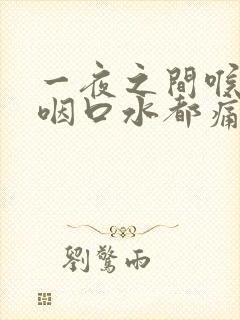 一夜之間喉
咽口水都痛
劉驚雨